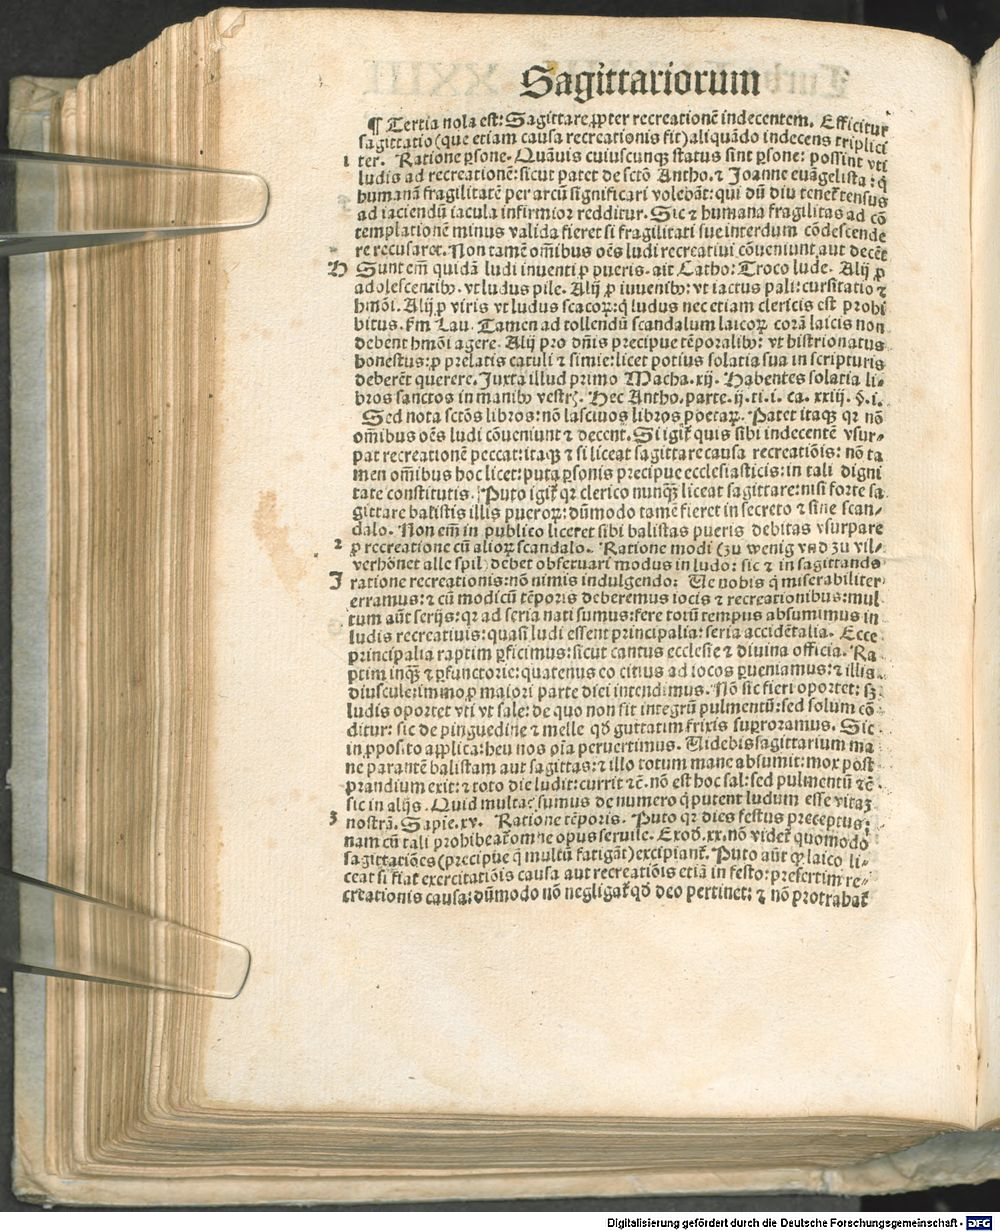 Sagittariorum
¶ Tertia nola est: Sagittare ꝓpter recreationē indecentem. Efficitur
sagittatio (que etiam causa recreationis fit) aliquādo indecens triplici
1 ter. Ratione ꝑsone. Quāuis cuiuscunqꝫ status sint ꝑsone: possint vti
ludis ad recreationē: sicut patet de sctō Antho. ⁊ Joanne euāgelista: q̇
humanā fragilitatē per arcū significari volebāt: qui dū diu tenet᷑ tensus
ad iaciendū iacula infirmior redditur. Sic ⁊ humana fragilitas ad cō
templationē minus valida fieret si fragilitati sue interdum cōdescende
re recusaret. Non tamē om̄ibus oēs ludi recreatiui cōueniunt aut decēt
H Sunt em̄ quidā ludi inuenti ꝓ pueris. ait Catho: Troco lude. Alij ꝓ
adolescentibꝰ. vt ludus pile. Alij ꝓ iuuenibꝰ: vt iactus pali: cursitatio ⁊
hmōi. Alij ꝓ viris vt ludus scacoꝝ: q̇ ludus nec etiam clericis est prohi
bitus. ẜm Lau. Tamen ad tollendū scandalum laicoꝝ corā laicis non
debent hmōi agere. Alij pro dn̄is precipue tēporalibꝰ: vt histrionatus
honestus: ꝓ prelatis catuli ⁊ simie: licet potius solatia sua in scripturis
deberēt querere. Juxta illud primo Macha. xij. Habentes solatia li⸗
bros sanctos in manibꝰ vestrꝭ. Hec Antho. parte. ij. ti. i. ca. xxiij. §. i.
Sed nota sctōs libros: nō lasciuos libros poetaꝝ. Patet itaqꝫ qꝛ nō
om̄ibus oēs ludi cōueniunt ⁊ decent. Si igit᷑ quis sibi indecentē vsur⸗
pat recreationē peccat: itaqꝫ ⁊ si liceat sagittare causa recreatiōis: nō ta
men om̄ibus hoc licet: puta ꝑsonis precipue ecclesiasticis: in tali digni
tate constitutis. Puto igit᷑ qꝛ clerico nunqꝫ liceat sagittare: nisi forte sa
gittare balistis illis pueroꝝ: dūmodo tamē fieret in secreto ⁊ sine scan⸗
dalo. Non em̄ in publico liceret sibi balistas pueris debitas vsurpare
2 ꝓ recreatione cū alioꝝ scandalo. Ratione modi (zu wenig vnd zu vil⸗
verhōnet alle spil) debet obseruari modus in ludo: sic ⁊ in sagittando
J ratione recreationis: nō nimis indulgendo: Ve nobis q̇ miserabiliter
erramus: ⁊ cū modicū tēporis deberemus iocis ⁊ recreationibus: mul
tum aūt serijs: qꝛ ad seria nati sumus: fere totū tempus absumimus in
ludis recreatiuis: quasi ludi essent principalia: seria accidētalia. Ecce
principalia raptim ꝑficimus: sicut cantus ecclesie ⁊ diuina officia. Ra
ptim inqꝫ ⁊ ꝑfunctorie: quatenus eo citius ad iocos ꝑueniamus: ⁊ illis
diuscule: immo ꝓ maiori parte diei intendimus. Nō sic fieri oportet: sꝫ
ludis oportet vti vt sale: de quo non fit integrū pulmentū: sed solum cō
ditur: sic de pinguedine ⁊ melle qd̄ guttatim frixis suꝑroramus. Sic
in ꝓposito applica: heu nos oīa peruertimus. Uidebis sagittarium ma
ne parantē balistam aut sagittas: ⁊ illo totum mane absumit: mox post
prandium exit: ⁊ toto die ludit: currit ⁊c̄. nō est hoc sal: sed pulmentū ⁊c̄
sic in alijs. Quid multa: sumus de numero q̇ putent ludum esse vitaꝫ
3 nostrā. Sapie. xv. Ratione tēporis. Puto qꝛ dies festus preceptus:
nam cū tali prohibeat᷑ omne opus seruile. Exod. xx. nō videt᷑ quomodo
sagittatiōes (precipue q̇ multū fatigāt) excipiant᷑. Puto aūt ꝙ laico li⸗
ceat si fiat exercitatiōis causa aut recreatiōis etiā in festo: presertim re⸗
creationis causa: dūmodo nō negligat᷑ qd̄ deo pertinet: ⁊ nō protrahat᷑
Digitalisierung gefördert durch die Deutsche Forschungsgemeinschaft - DFG